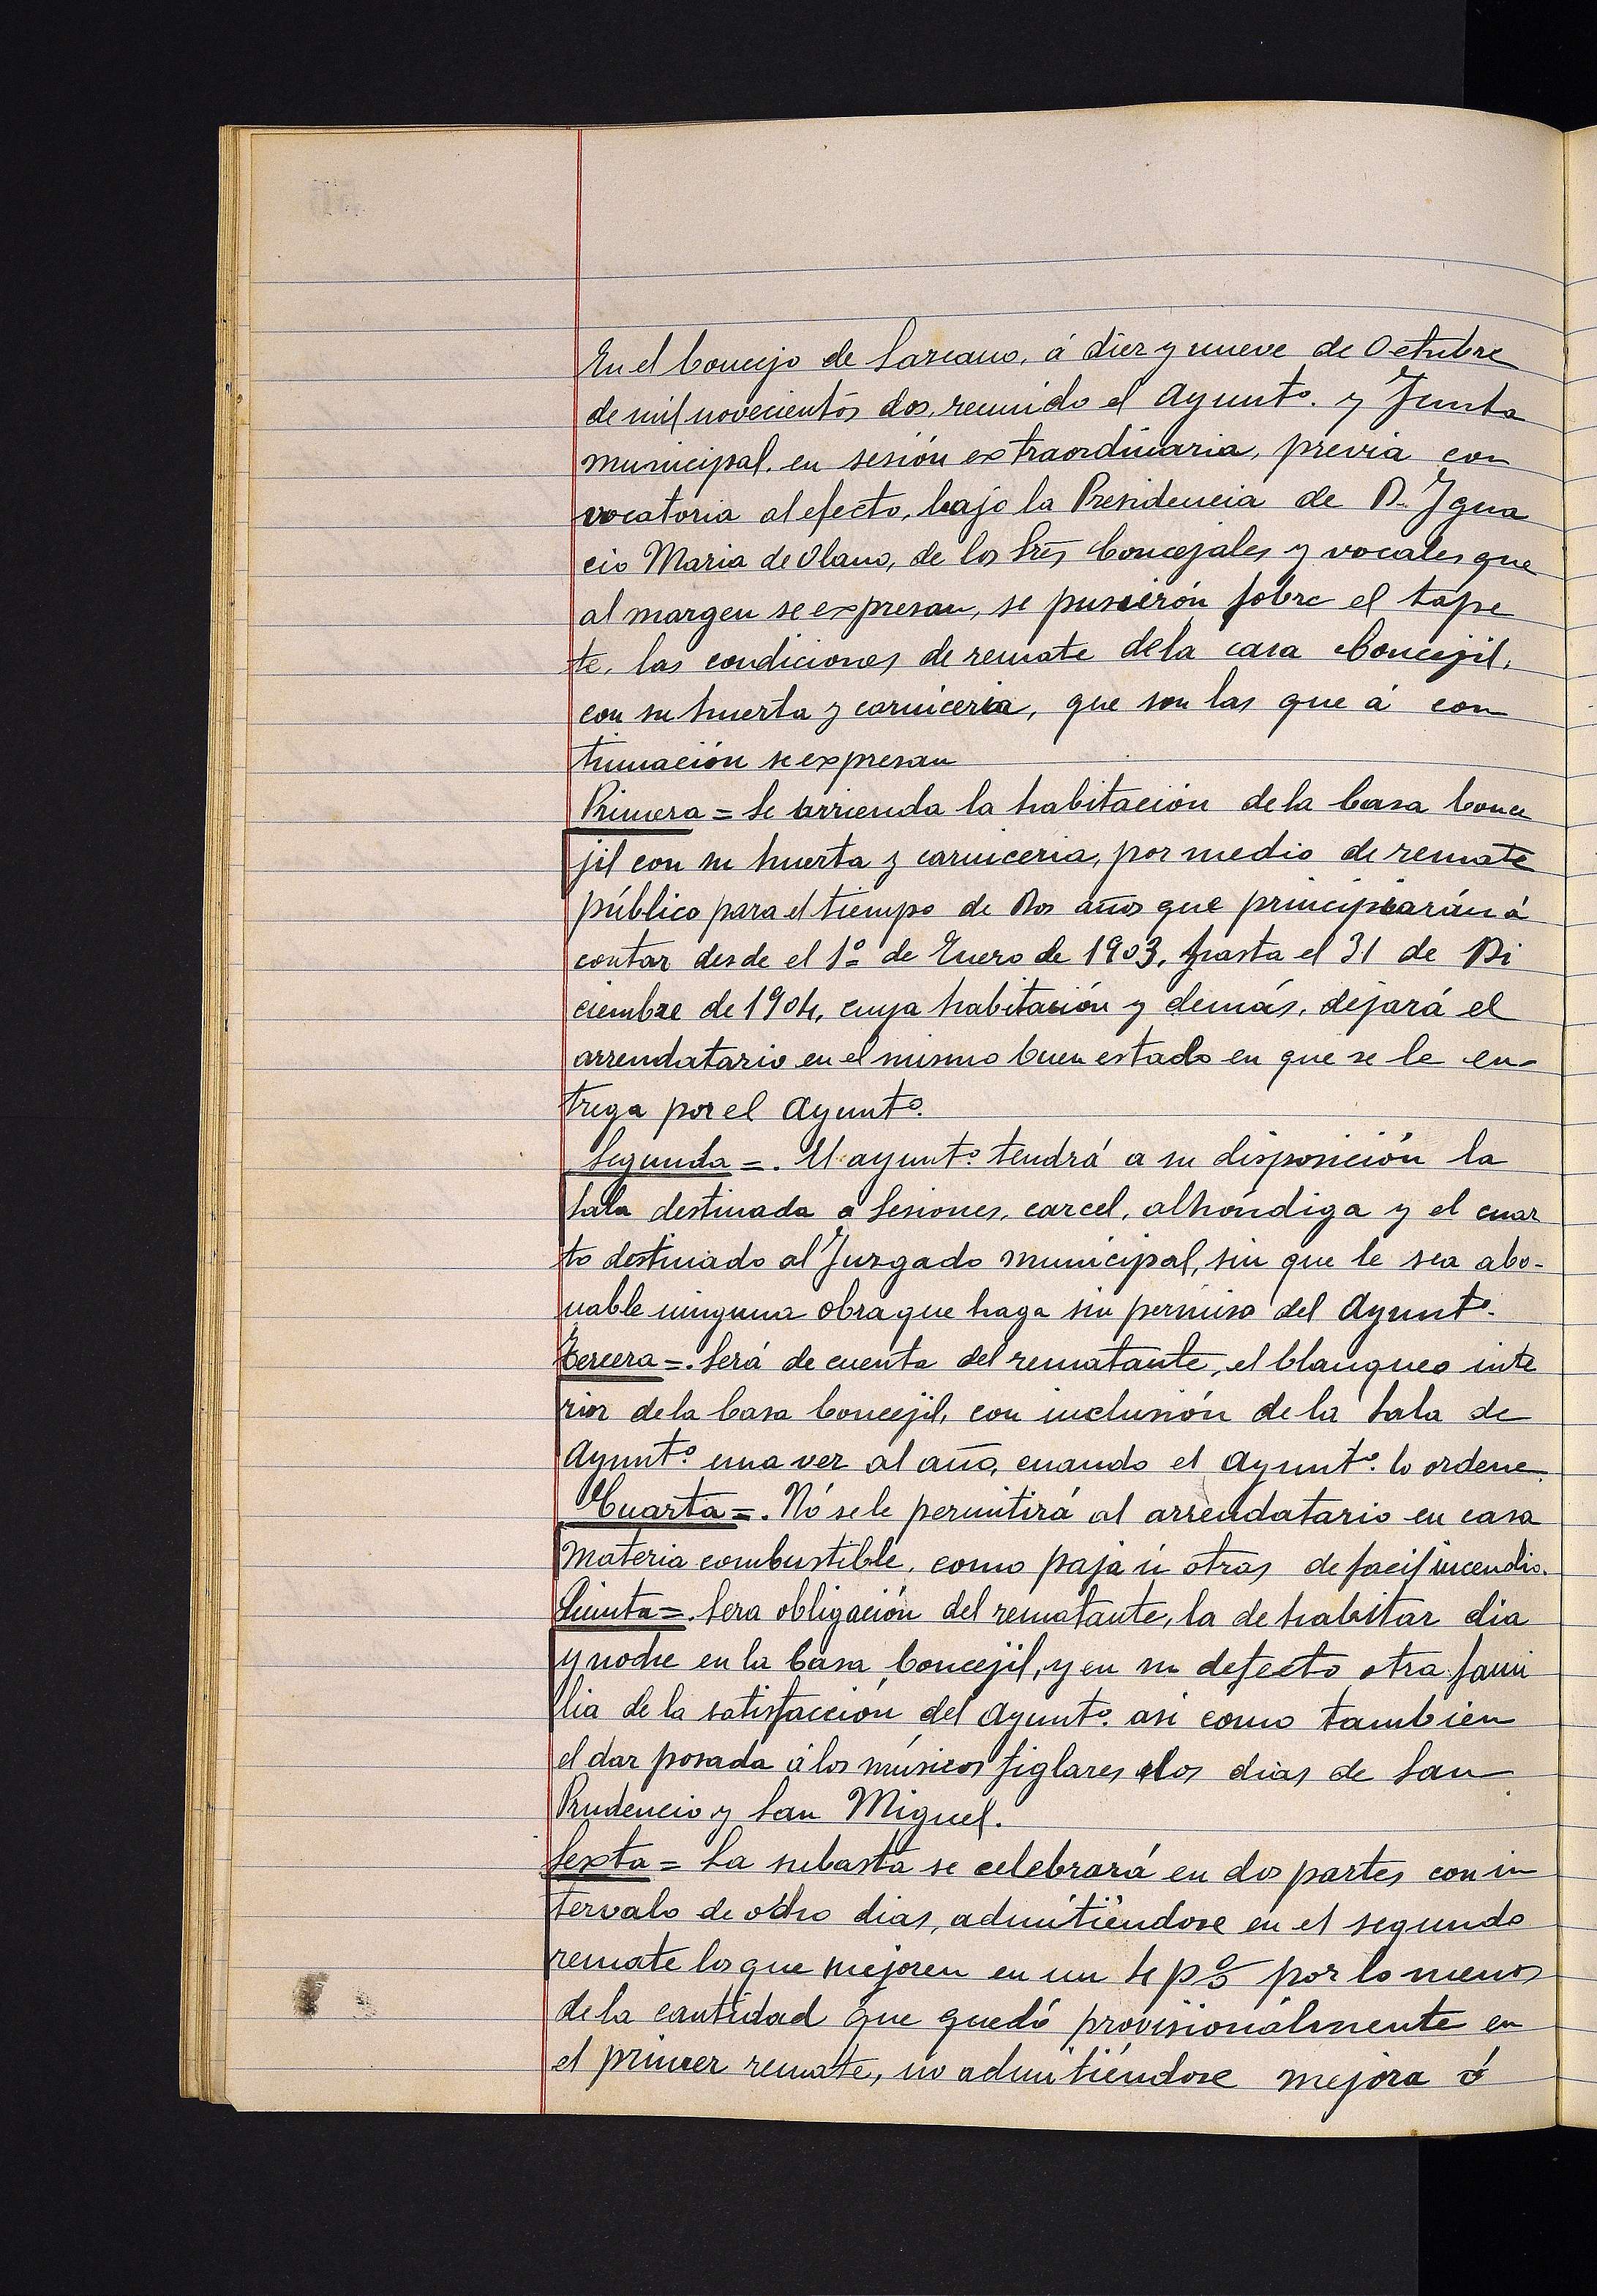 En el Concejo de Lazcano, á diez y nueve de Octubre
de mil novecientos dos, reunido el Ayuntº. y Junta
municipal, en sesión extraordinaria, previa con
vocatoria al efecto, bajo la Presidencia de D. Igna
cio Maria de Olano, de los Srēs Concejales y vocales que
al margen se expresan, se pusierón sobre el tape
te, las condiciones de remate dela casa Concejil,
con su huerta y carniceria, que son las que á con
tinuación se expresan
Primera = Se arrienda la habitación dela Casa Conce
jil con su huerta y carniceria, por medio de remate
público para el tiempo de Dos años que principiarán á
contar desde el 1º de Enero de 1903, hasta el 31 de Di
ciembre de 1904, cuya habitación y demás, dejará el
arrendatario en el mismo buen estado en que se le en-
trega por el Ayuntº.
Segunda =. El ayuntº. tendrá a su disposición la
Sala destinada a Sesiones, carcel, alhóndiga y el cuar
to destinado al Juzgado municipal, sin que le sea abo-
nable ninguna obra que haga sin permiso del Ayuntº.
Tercera =. Será de cuenta del rematante, el blanqueo inte
rior dela Casa Concejil, con inclusión de la Sala de
Ayuntº. una vez al año, cuando el Ayuntº. lo ordene.
Cuarta =. Nó sele permitirá al arrendatario en casa
Materia combustible, como paja ú otras de facil incendio.
Quinta =. Sera obligación del rematante, la de habitar dia
y noche en la Casa Concejil, y en su defecto otra fami
lia de la satisfacción del Ayuntº. asi como tambien
el dar posada á los músicos jiglares los dias de San
Prudencio y San Miguel.
Sexta = La subasta se celebrará en dos partes con in
tervalo de ocho dias, admitiéndose en el segundo
remate los que mejoren en un 4 p% por lo menos
de la cantidad que quedó provisionalmente en
el primer remate, no admitiéndose mejora ó